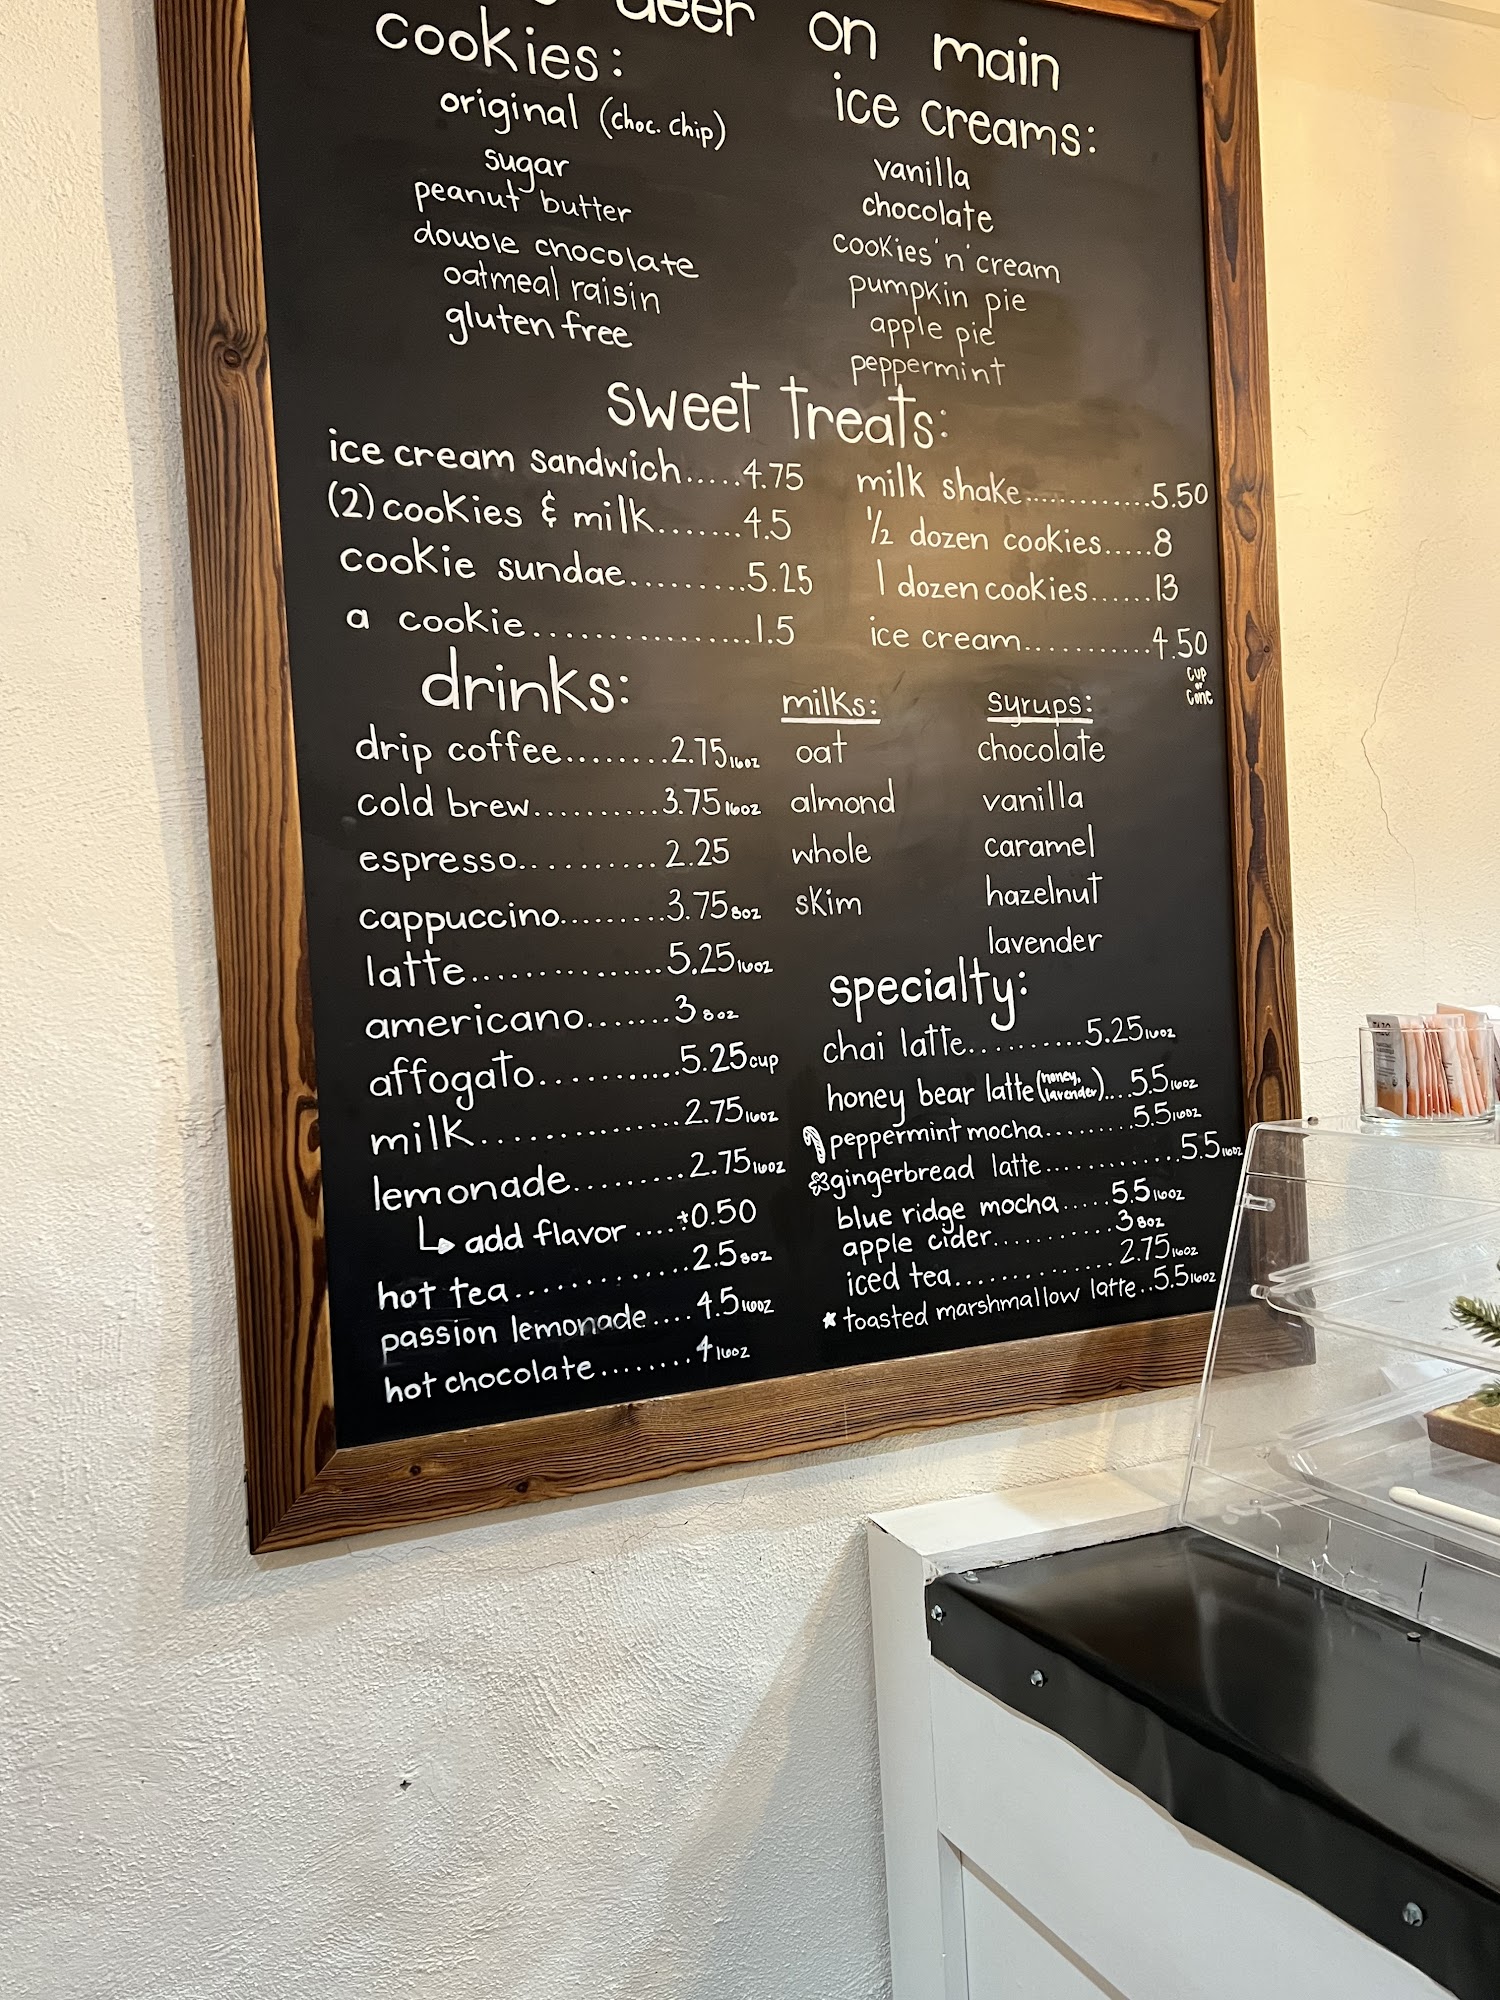 deer on main
cookies:
original (choc. chip)
sugar
peanut butter
double chocolate
oatmeal raisin
gluten free
ice creams:
vanilla
chocolate
cookies 'n' cream
pumpkin pie
apple pie
peppermint
sweet treats:
ice cream sandwich.....4.75
(2) cookies & milk.......4.5
cookie sundae.........5.25
a cookie................1.5
milk shake............5.50
1/2 dozen cookies.....8
1 dozen cookies......13
ice cream...........4.50
cup
or
cone
drinks:
drip coffee........2.75 16oz
cold brew..........3.75 16oz
espresso..........2.25
cappuccino.........3.75 8oz
latte..............5.25 16oz
americano.......3 8oz
affogato...........5.25 cup
milk..............2.75 16oz
lemonade.........2.75 16oz
add flavor ....+0.50
hot tea............2.5 8oz
passion lemonade....4.5 16oz
hot chocolate........4 16oz
milks:
oat
almond
whole
skim
syrups:
chocolate
vanilla
caramel
hazelnut
lavender
specialty:
chai latte..........5.25 16oz
honey bear latte (honey, lavender)....5.5 16oz
peppermint mocha.........5.5 16oz
gingerbread latte............5.5 16oz
blue ridge mocha.....5.5 16oz
apple cider..........3 8oz
iced tea..............2.75 16oz
* toasted marshmallow latte..5.5 16oz